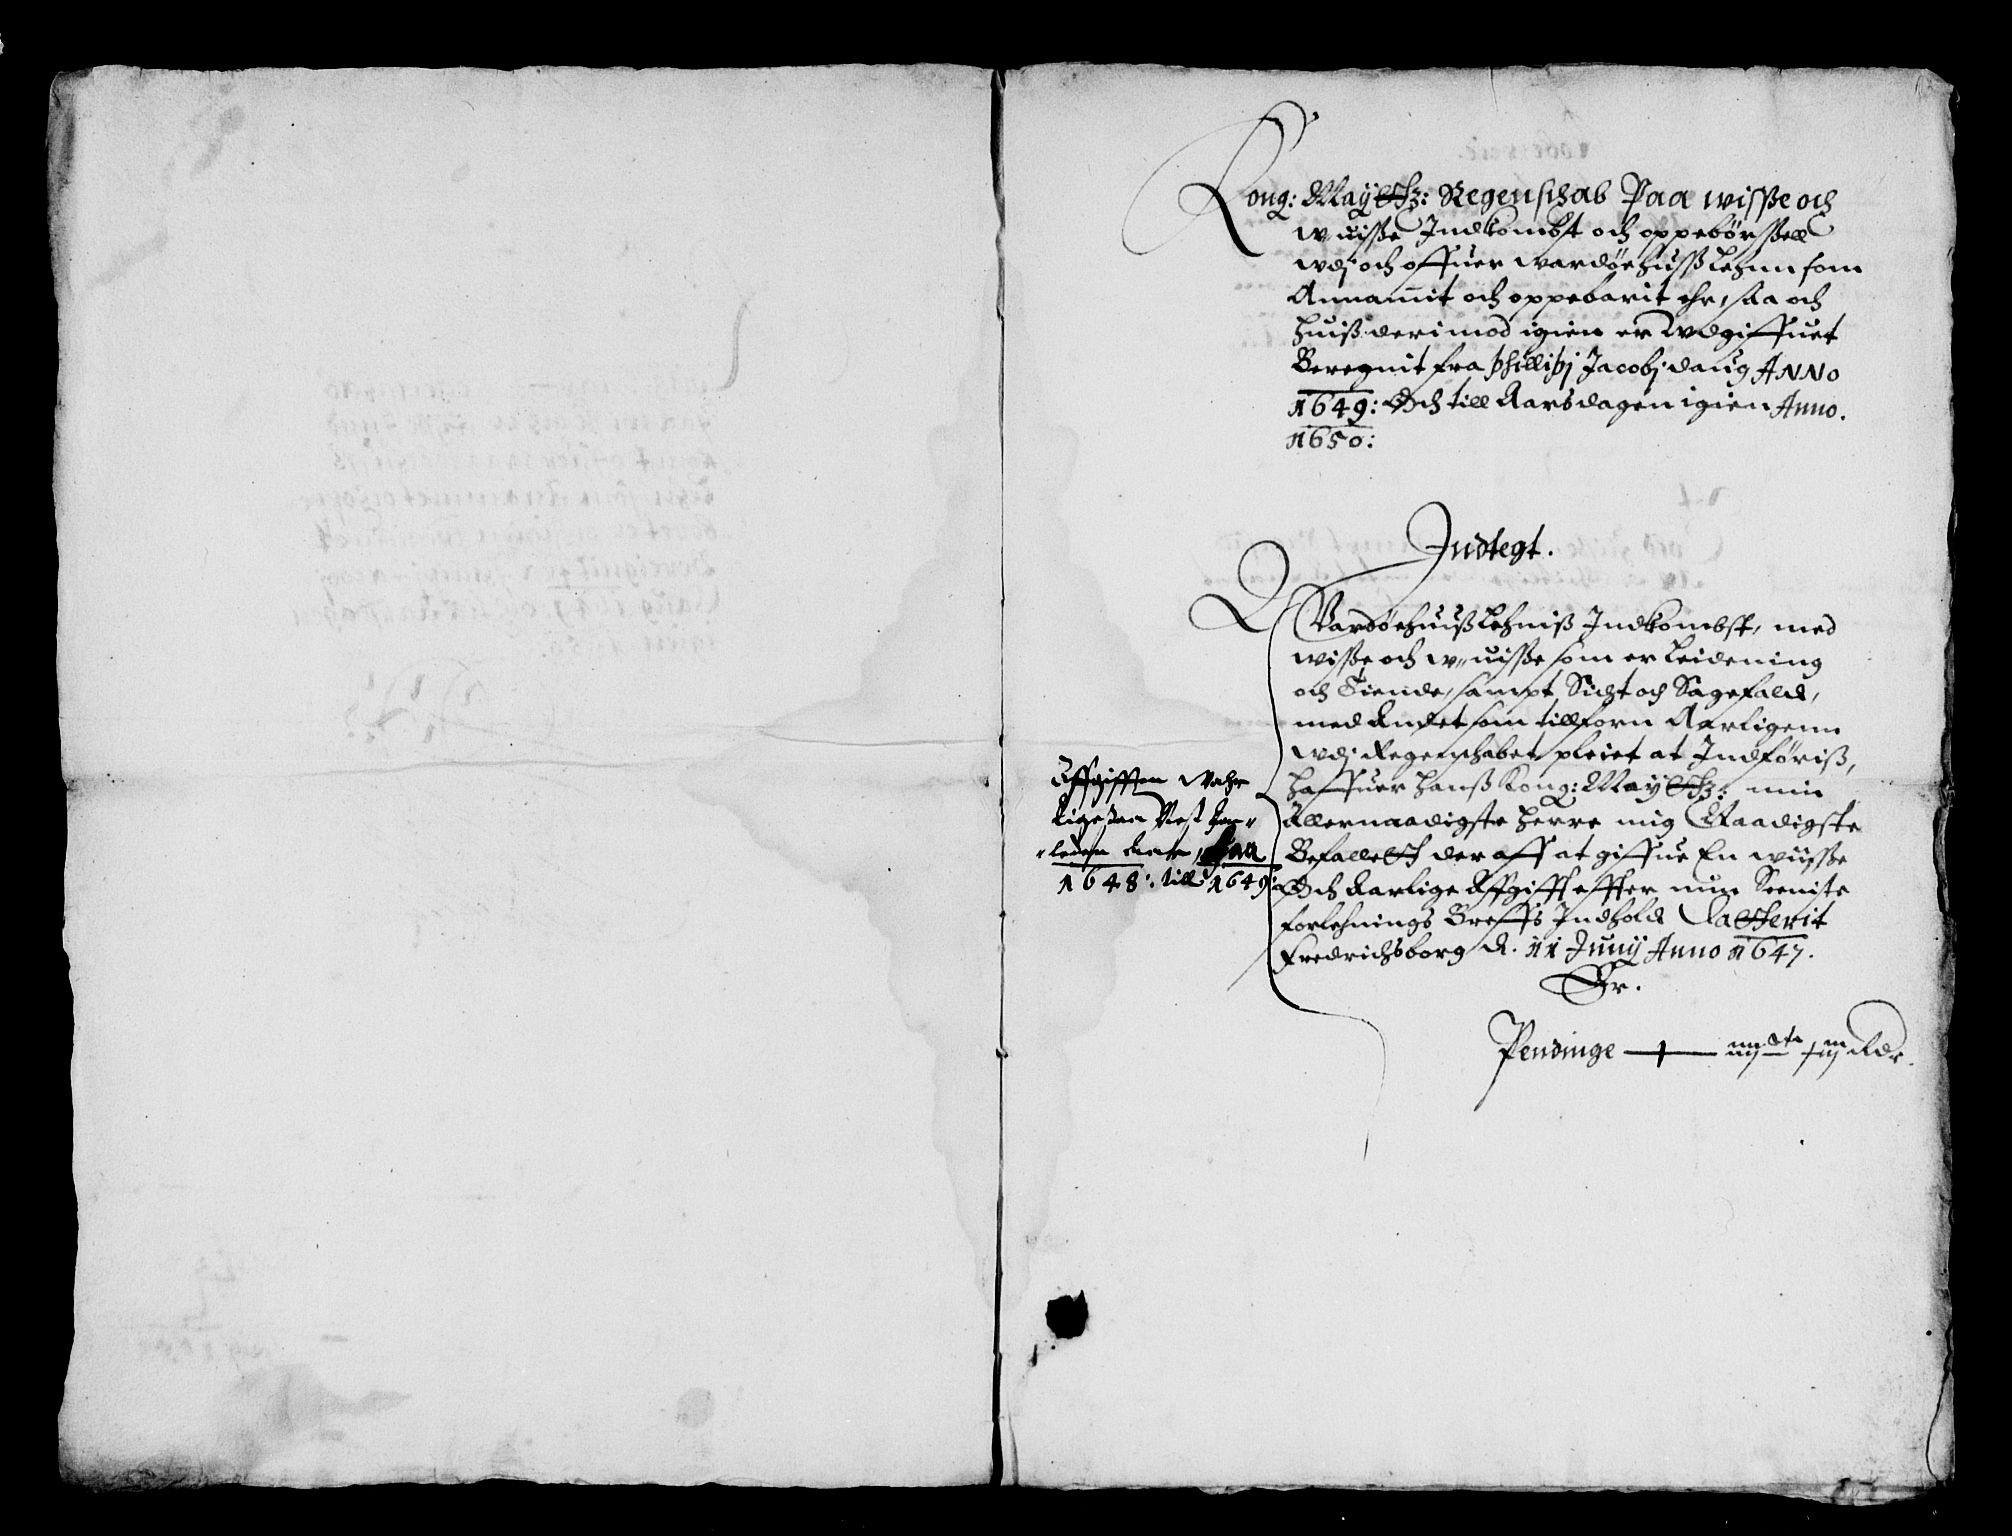 Kong: May^tts: Regenschab Paa wisse och
w-uisse Indkombst och oppebørssell
udj och offuer Wardøehuss Lehnn som
Annammit och oppebarit ehr, saa och
huiss derimod igien er Udgiffuet
Beregnit fra Phillipj Jacobj daug ANNO
1649: Och till Aarsdagen igien Anno.
1650:
Indtegt.
Wardøehuiss Lehniss Indkombst, med
wisse och w-uisse som er Leidening
och Tiende, sampt Sicht och Sagefald,
med Andet som tillforn Aarligenn
udj Regenschabet pleiet at Indføriss,
haffuer Hanss Kong: Maytts: min
Allernaadigste Herre mig Naadigste
Befallet der aff at giffue En wiisse
Och Aarlige Affgifft effter min Seeniste
Forlehnings Breffs Indhold Daterit
Fredrichsborg d. 11 Junij Anno 1647.
Er.
Affgifften Wahr
Ligesaa Nest for-
leden Aar, Fra
1648: till 1649:
Pendinge